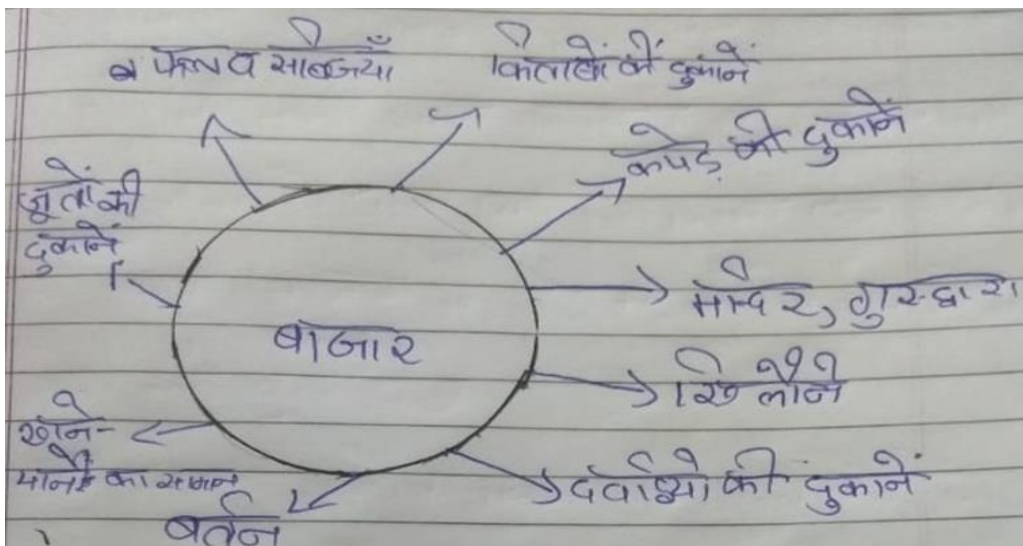 फल व सब्जियाँ
किताबों की दुकानें
कपड़े की दुकानें
मन्दिर, गुरुद्वारा
खिलौने
दवाईयो की दुकानें
बर्तन
खाने-
पीने का समान
जूतों की
दुकानें
बाजार